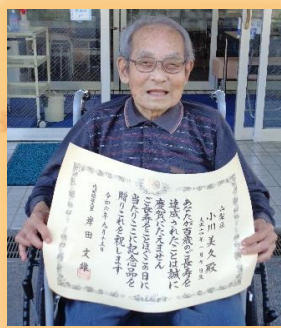 山梨県
小川美久殿
あなたが百歳のご長寿を
達成されたことは誠に
慶賀にたえません
ご長寿をことほぐこの日に
当たりここに記念品を
贈りこれを祝します
令和六年九月十五日
内閣総理大臣 岸田文雄